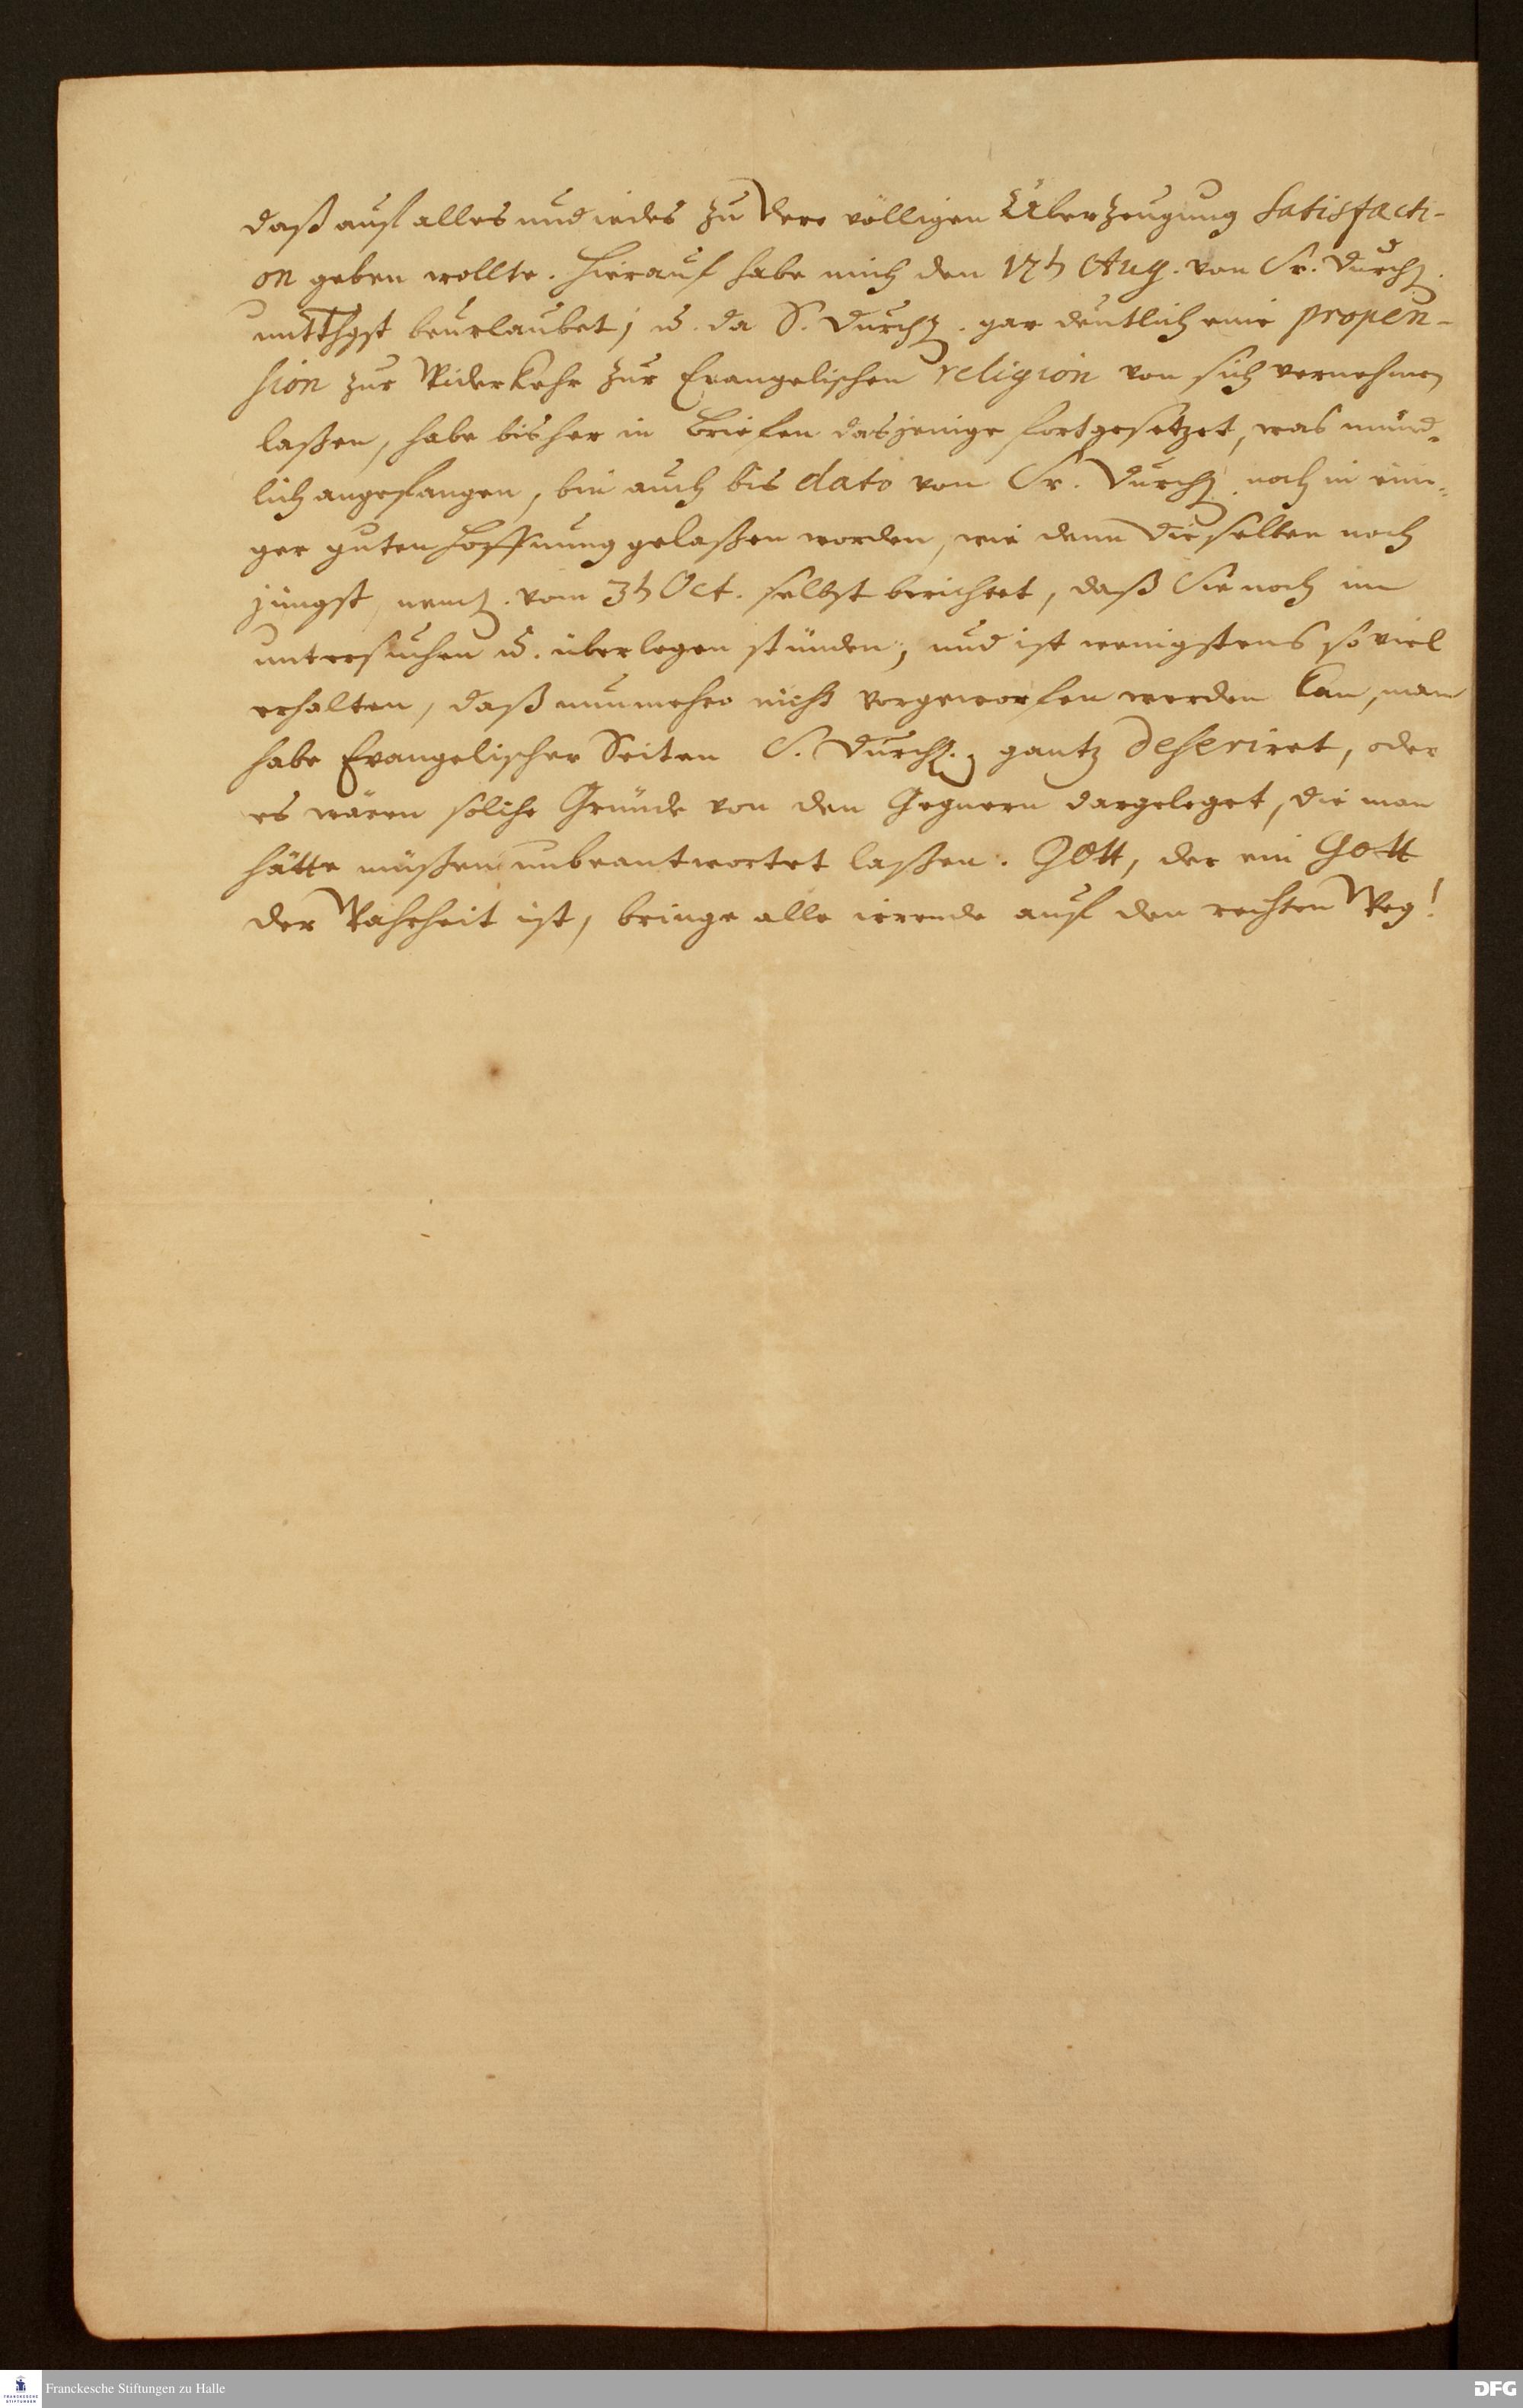 daß auf alles und iedes zu Dero völligen Überzeugung Satisfacti-
on geben wollte. Hierauf habe mich den 17t Aug. von Sr. Durchl.
untthgst beurlaubet; u. da S. Durchl. gar deutlich eine propen-
sion zur Widerkehr zur Evangelischen religion von sich vernehmen
laßen, habe bisher in Briefen dasjenige fortgesetzet, was münd-
lich angefangen, bin auch bis dato von Sr. Durchl. noch in eini-
ger guten Hoffnung gelaßen worden, wie denn Dieselben noch
jüngst, neml. vom 3t Oct. selbst berichtet, daß Sie noch im
untersuchen u. überlegen stünden; und ist wenigstens so viel
erhalten, daß nunmehro nicht vorgeworfen werden kan, man
habe Evangelischer Seiten S. Durchl. gantz deseriret, oder
es wären solche Gründe von den Gegnern dargeleget, die man
hätte müßen unbeantwortet laßen. GOtt, der ein Gott
der Wahrheit ist, bringe alle irrende auf den rechten Weg!
FRANCKESCHE STIFTUNGEN
Franckesche Stiftungen zu Halle
DFG